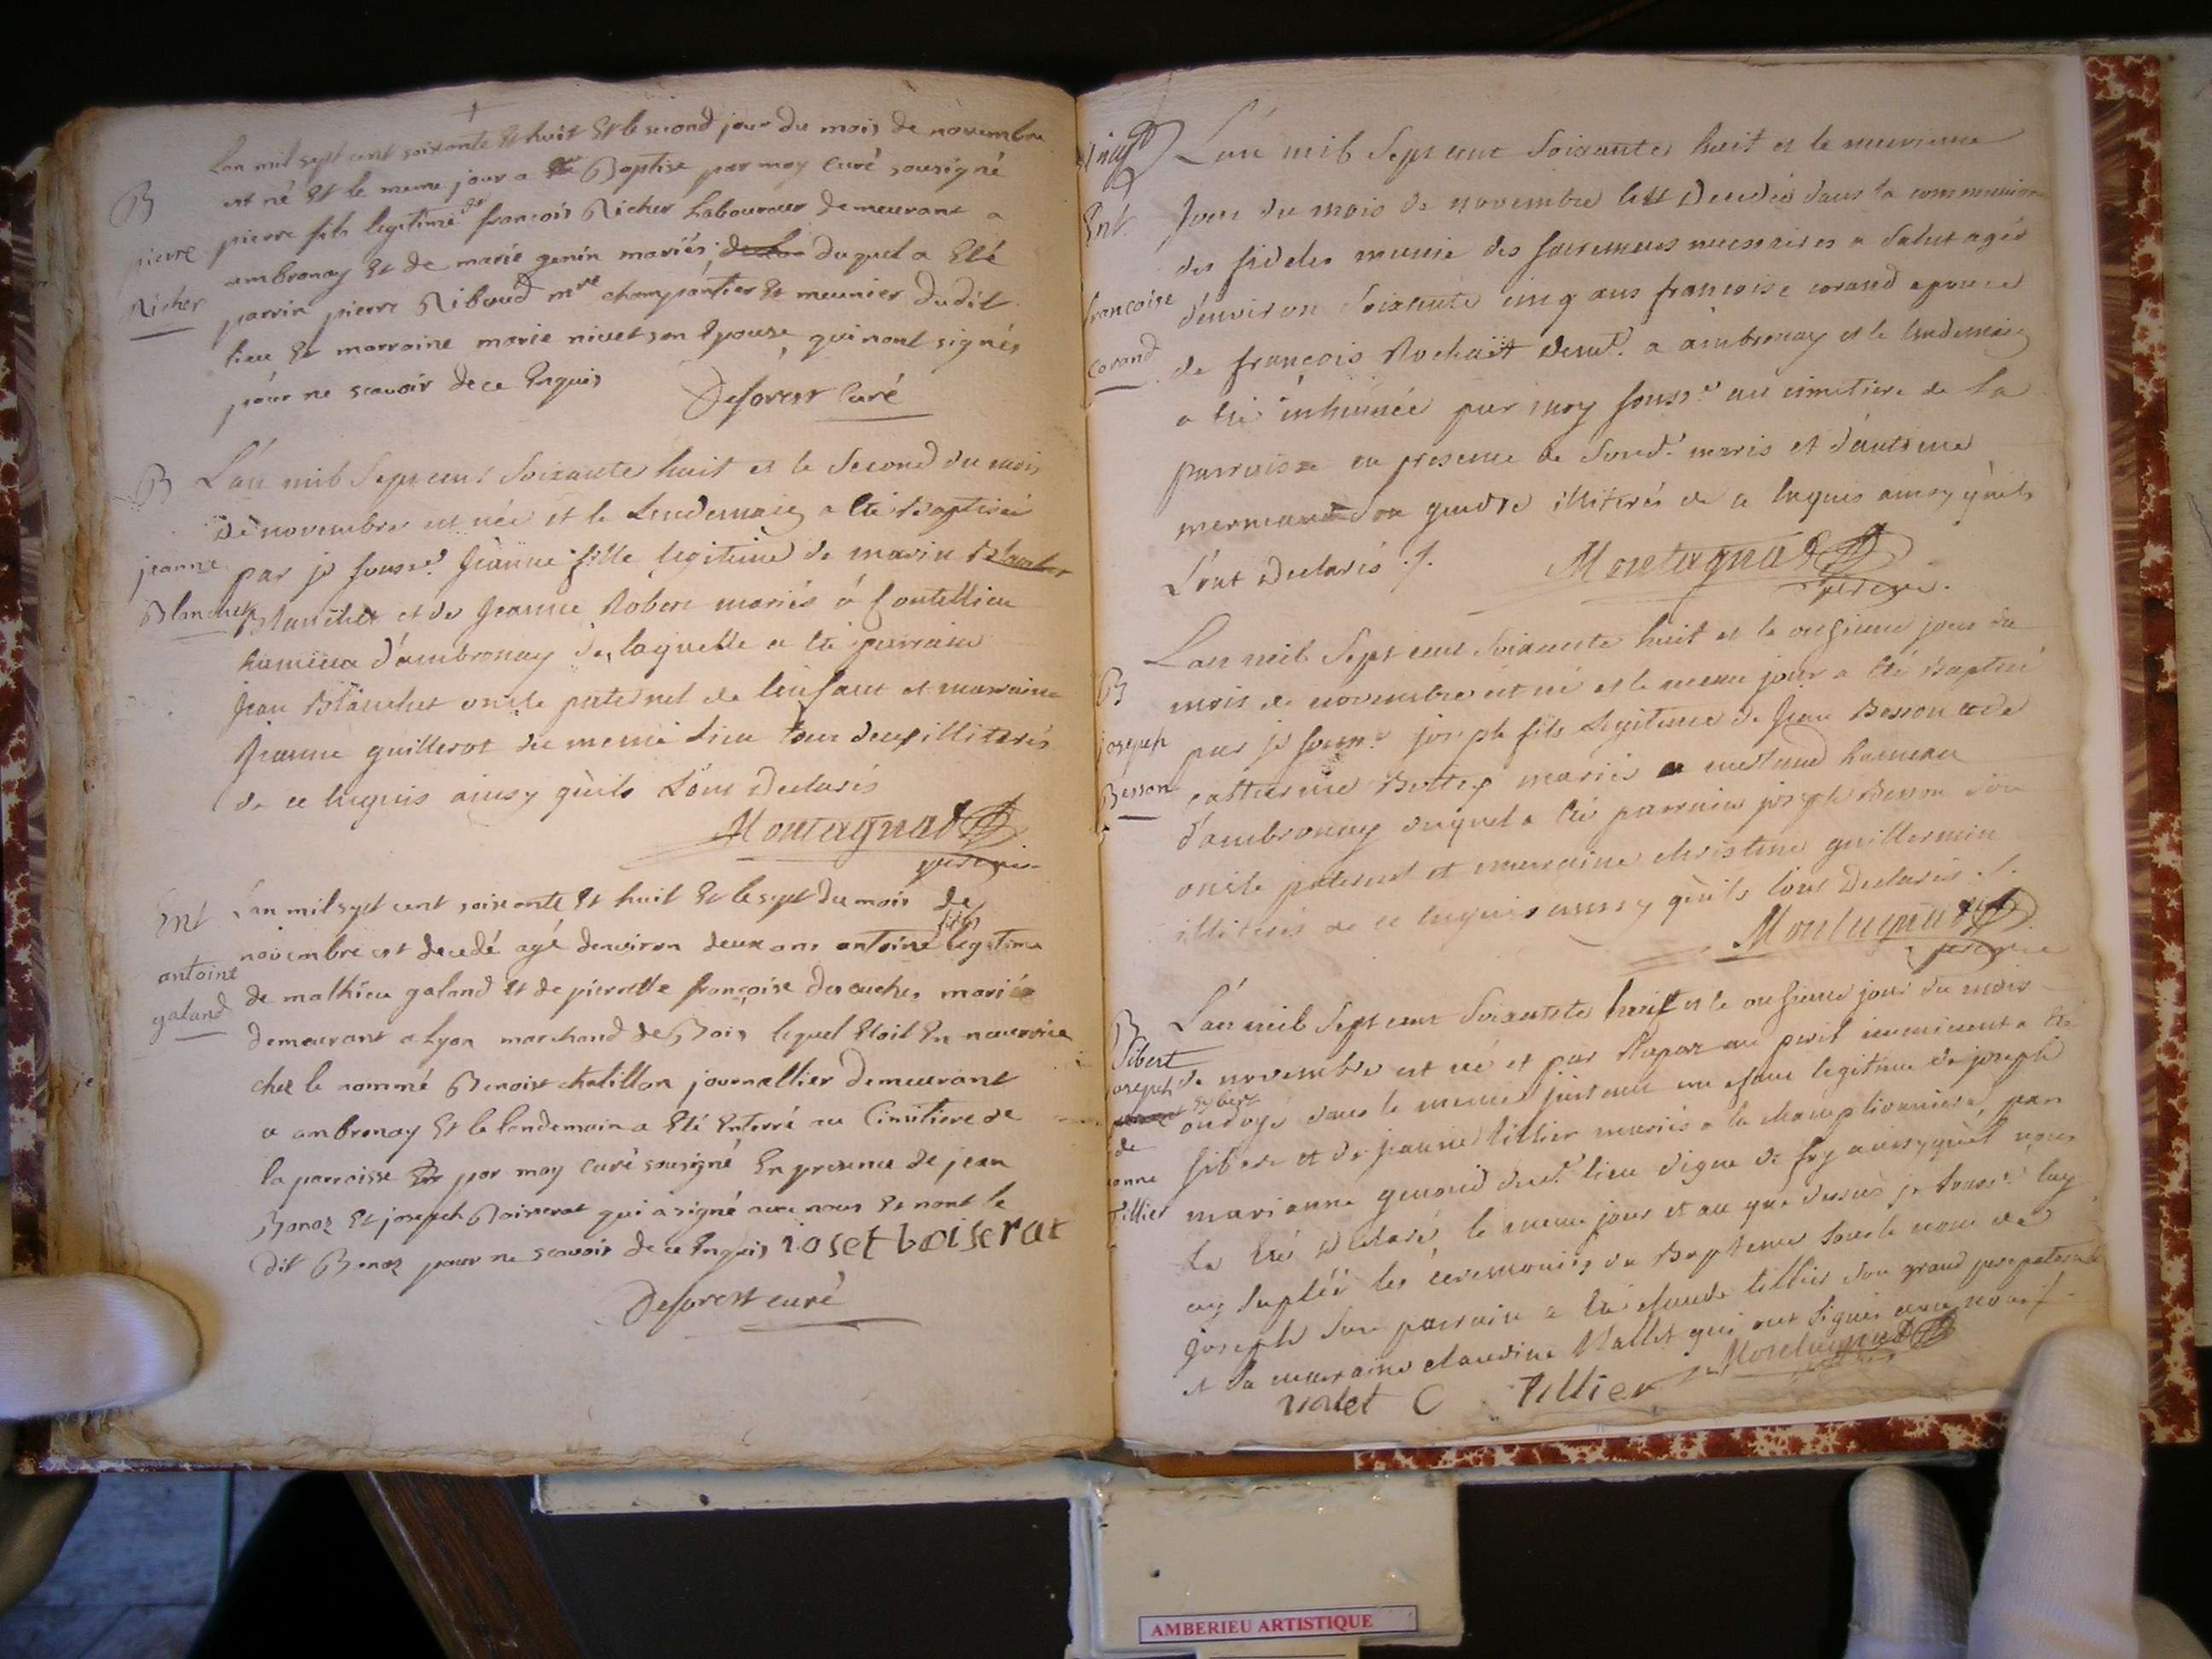 B
pierre
Richer
Lan mil sept cent soixante Et huit Et le second jour du mois de novembre
est né Et le meme jour a Baptise par moy Curé sousigné
pierre fils legitime de francois Richer Laboureur demeurant a
ambronay Et de marie genin mariés, duquel a Eté
parrin pierre Ribaud mre charpantier Et meunier dudit
lieu Et marraine marie nivet son Epouse, qui nont signés
pour ne scavoir de ce Enquis
Deforest Curé
B
jeanne
Blanchet
L'an mil Sept cent Soixante huit et le Second du mois
de novembre est née et le Lendemain a été Baptisée
par je souss.é Jeanne fille legitime de marin
Blanchet et de Jeanne Robin mariés à
hameau d'ambronay de laquelle a été parrain
Jean Blanchet oncle paternel de l'enfant et marraine
Jeanne guillerot du meme Lieu tous deux illiterés
de ce Enquis ainsy qu'ils L'ont Declarés
Montagnat
Ent
antoine
galand
Lan mil sept cent soixante Et huit Et le sept du mois de
novembre est decedé agé denviron deux ans antoine fils legitime
de mathieu galand Et de pierrette françoise mariés
demeurant a Lyon marchand de Bois lequel Etoit En nourrice
chez le nommé Benoist chatillon journallier demeurant
a ambronay Et le landemain a Eté Enterré au Cimitiere de
la parroisse par moy Curé sousigné En presence de jean
Bonaz Et joseph Boiserat qui a signé avec nous Et nont le
dit Bonaz pour ne scavoir de ce Enquis ioset boiserat
Deforest curé
Ent.
francoise
corand
L'an mil Sept cent Soixante huit et le neuvieme
Jour du mois de novembre est Decedée dans la communion
des fideles munie des sacremens necessaires a Salut agée
d'environ Soixante cinq ans francoise corand epouse
de françois Rochait demt. a ambronay et le lendemain
a été inhumée par moy souss.é au cimetiere de la
parroisse en presence de Sond.t maris et d'antoine
mermand Son gendre illiterés de ce Enquis ainsy qu'ils
L'ont Declarés ./.
Montagnat
B
joseph
Besson
L'an mil Sept cent Soixante huit et le onzieme jour du
mois de novembre est né et le meme jour a été Baptisé
par je souss.é joseph fils Legitime de Jean Besson et de
catherine mariés a hameau
d'ambronay duquel a été parrain joseph Besson son
oncle paternel et marraine christine guillermin
illiterés de ce Enquis ainsy qu'ils L'ont Declarés ./.
Montagnat
B
Sibert
joseph
de
Tillier
L'an mil Sept cent Soixante huit et le onzieme jour du mois
de novembre est né et par Raport au peril imminent a été
ondoyé dans le meme instant un enfant legitime de joseph
sibert et de jeanne tillier mariés a la champlivaniere, par
marianne dud.t lieu digne de foy ainsy qu'il nous
La été Declaré, le meme jour et an que dessus je souss.é luy
ay Supléé les ceremonies du Bapteme sous le nom de
Joseph Son parrain a été claude tillier son grand pere paternel
et Sa marraine claudine Vallet qui ont signés avec nous ./.
Montagnat
valet C Tillier
AMBERIEU ARTISTIQUE